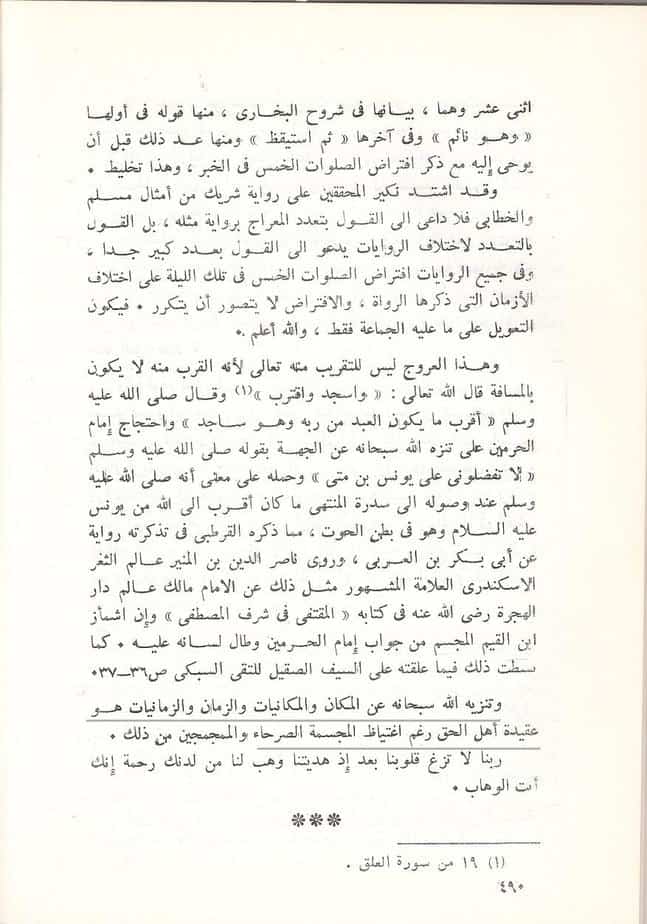 اثنى عشر وهما ، بيانها فى شروح البخارى ، منها قوله فى أولها
« وهـو نائم » وفى آخرها « ثم استيقظ » ومنها عد ذلك قبل أن
يوحى إليه مع ذكر افتراض الصلوات الخمس فى الخبر ، وهذا تخليط •
وقد اشتد نكير المحققين على رواية شريك من أمثال مسلم
والخطابى فلا داعى الى القول بتعدد المعراج برواية مثله ، بل القول
بالتعدد لاختلاف الروايات يدعو الى القول بعدد كبير جدا ،
وفى جميع الروايات افتراض الصلوات الخمس فى تلك الليلة على اختلاف
الأزمان التى ذكرها الرواة ، والافتراض لا يتصور أن يتكرر • فيكون
التعويل على ما عليه الجماعة فقط ، والله أعلم •
وهـذا العروج ليس للتقريب منه تعالى لأنه القرب منه لا يكون
بالمسافة قال الله تعالى : « واسجد واقترب »(١) وقال صلى الله عليه
وسلم « أقرب ما يكون العبد من ربه وهو ساجد » واحتجاج إمام
الحرمين على تنزه الله سبحانه عن الجهة بقوله صلى الله عليه وسلم
« لا تفضلونى على يونس بن متى » وحمله على معنى أنه صلى الله عليه
وسلم عند وصوله الى سدرة المنتهى ما كان أقرب الى الله من يونس
عليه السلام وهو فى بطن الحوت ، مما ذكره القرطبى فى تذكرته رواية
عن أبى بكر بن العربى ، وروى ناصر الدين بن المنير عالم الثغر
الاسكندرى العلامة المشهور مثل ذلك عن الامام مالك عالم دار
الهجرة رضى الله عنه فى كتابه « المقتفى فى شرف المصطفى » وإن اشمأز
ابن القيم المجسم من جواب إمام الحرمين وطال لسانه عليه • كما
بسطت ذلك فيما علقته على السيف الصقيل للتقى السبكى ص٣٦ـ٣٧•
وتنزيه الله سبحانه عن المكان والمكانيات والزمان والزمانيات هـو
عقيدة أهل الحق رغم اغتياظ المجسمة الصرحاء والممجمجين من ذلك •
ربنا لا تزغ قلوبنا بعد إذ هديتنا وهب لنا من لدنك رحمة إنك
أنت الوهاب •
***
(١) ١٩ من سورة العلق .
٤٩٠